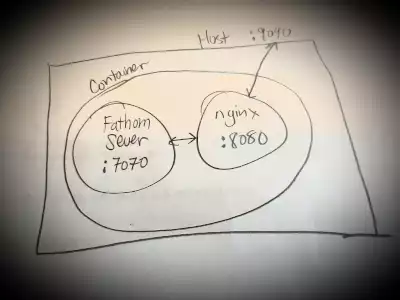 Host :9090
Container
Fathom
Sever
:7070
nginx
:8080